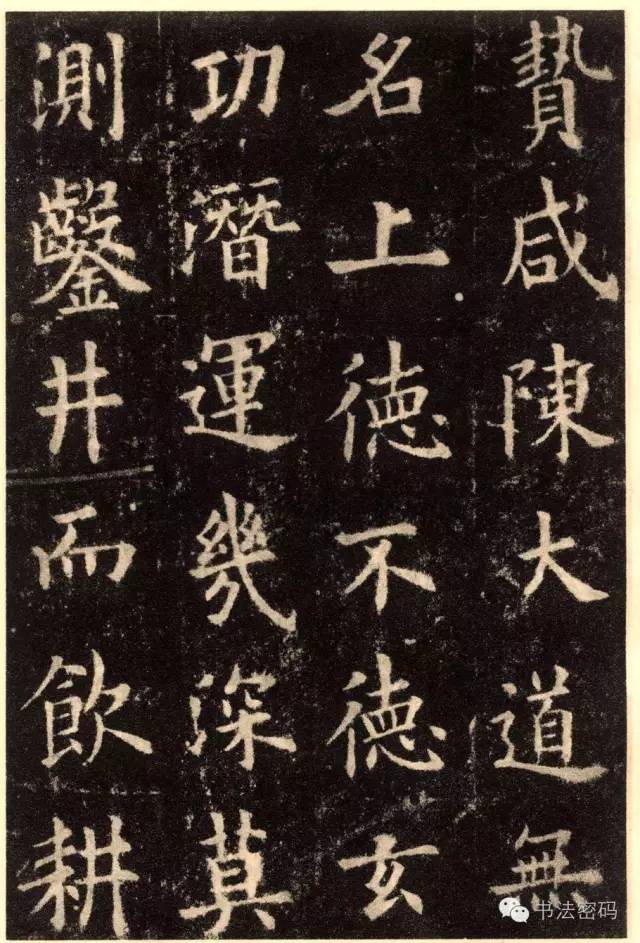 贄咸陳大道無
名上德不德玄
功潛運幾深莫
測鑿井而飲耕
书法密码